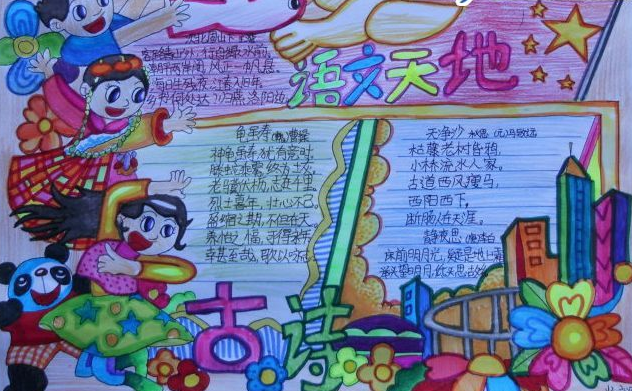 次北固山下 王湾
客路青山外,行舟绿水前。
潮平两岸阔,风正一帆悬。
海日生残夜,江春入旧年。
乡书何处达?归雁洛阳边。
语文天地
龟虽寿 曹操
神龟虽寿,犹有竟时。
腾蛇乘雾,终为土灰。
老骥伏枥,志在千里。
烈士暮年,壮心不已。
盈缩之期,不但在天。
养怡之福,可得永年。
幸甚至哉,歌以咏志。
天净沙 秋思 (元)马致远
枯藤老树昏鸦,
小桥流水人家。
古道西风瘦马,
西阳西下,
断肠人在天涯。
静夜思 (唐)李白
床前明月光,疑是地上霜
举头望明月,低头思故乡
古诗